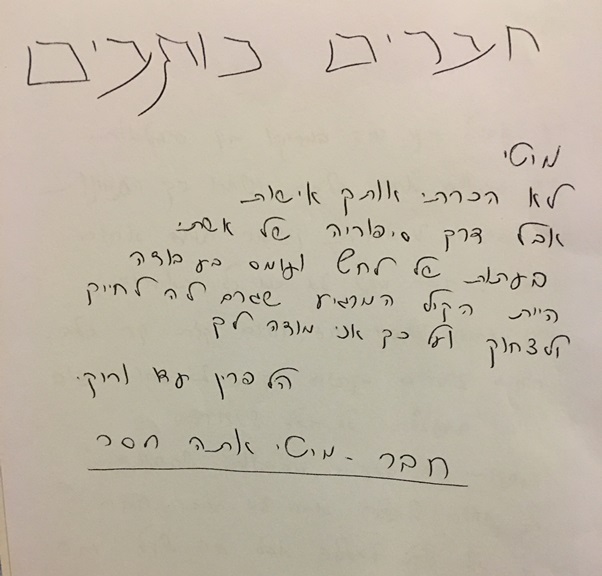 חברים כותבים
מוטי
לא הכרתי אותך אישית
אבל דרך סיפוריה של אשתי
בעתות של לחץ ועומס בעבודה
היית הקול המרגיע שגרם לה לחייך
ולצחוק ועל כך אני מודה לך
הלפרין עדו ורוקי
חבר - מוטי אתה חסר